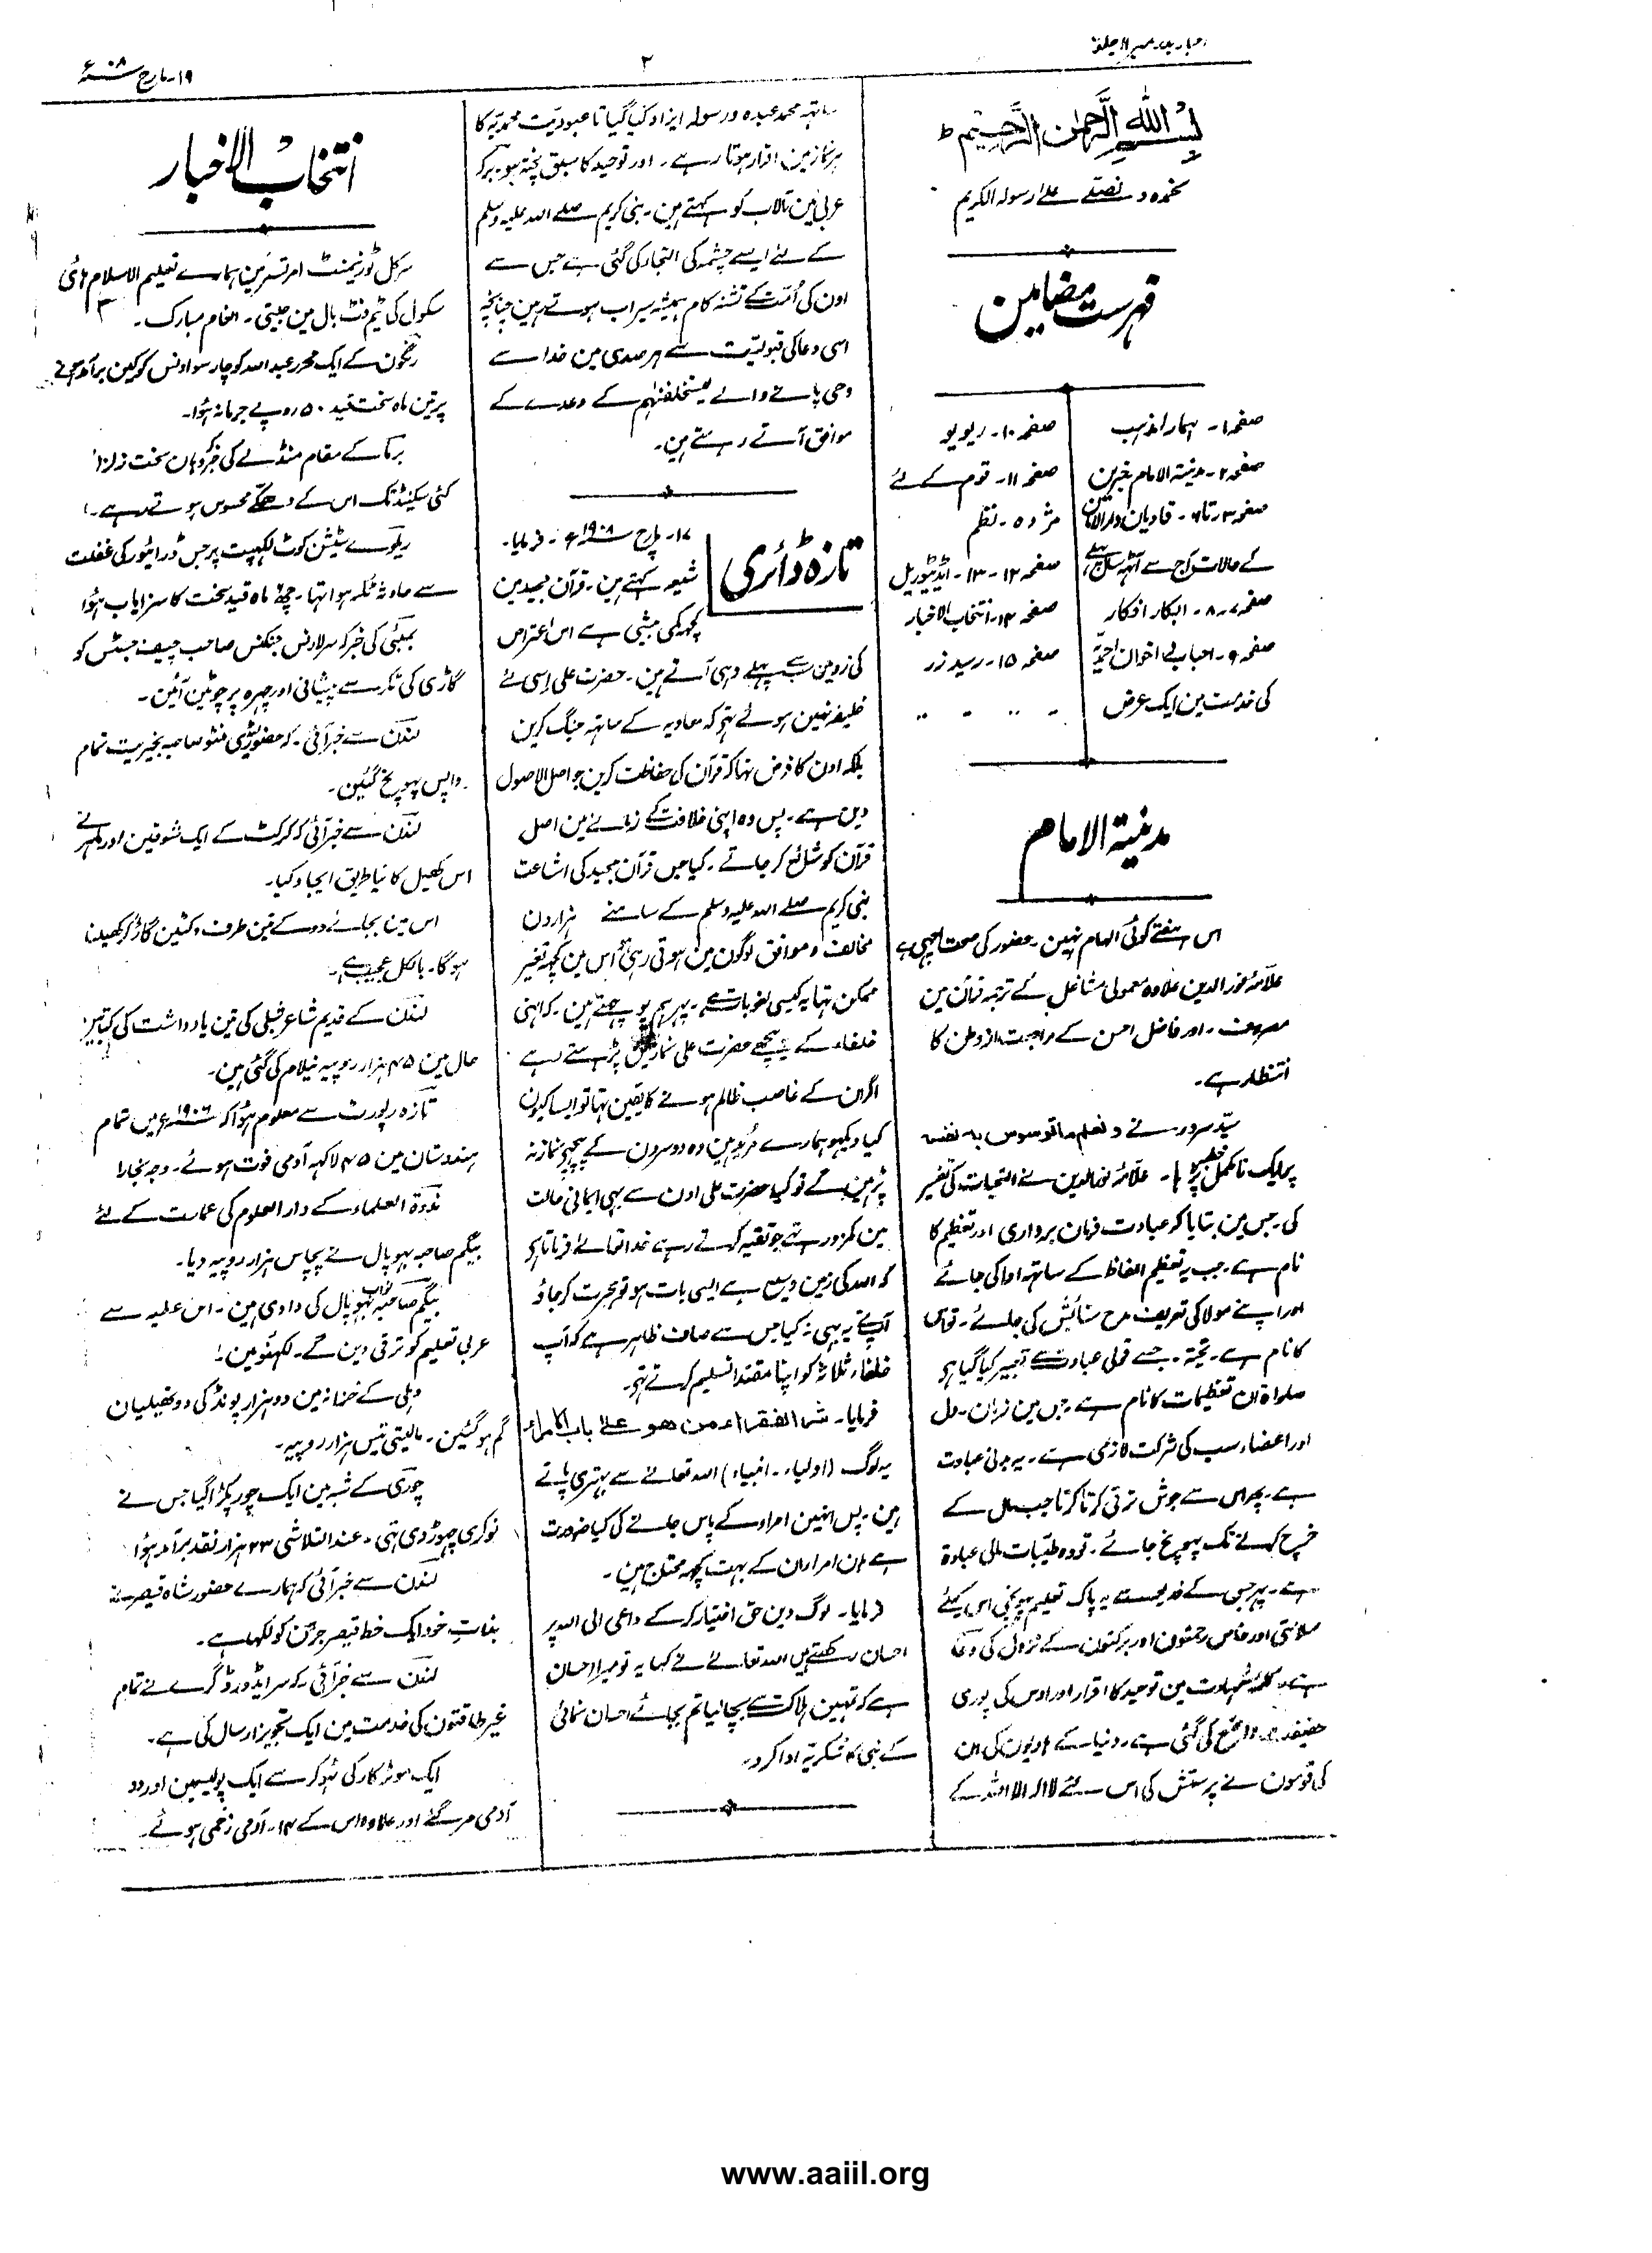 اخبار بدر نمبر ۱۱ جلد ۷
۲
۱۹۔ مارچ ۱۹۰۸ء
بسم اللہ الرحمٰن الرحیم ط
نحمدہ و نصلے علے رسولہ الکریم
فہرست مضامین
صفحہ ۱۔ ہمارا مذہب
صفحہ ۲۔ مدینۃ الامام خبرین
صفحہ ۳ تا ۶۔ قادیان دارالامان
کے حالات آج سے آٹھ سال پہلے
صفحہ ۷۔۸۔ ابکار افکار
صفحہ ۹۔ احبابی اخوان احمدیہ
کی خدمت مین ایک عرض
صفحہ ۱۰۔ ریویو
صفحہ ۱۱۔ قوم کے لئے
مژدہ۔ نظم
صفحہ ۱۲۔۱۳۔ ایڈیٹوریل
صفحہ ۱۴۔ انتخاب الاخبار
صفحہ ۱۵۔ رسید زر
مدینۃ الامام
اس ہفتے کوئی الہام نہین۔ حضور کی صحت اچھی ہے
علامہ نور الدین علاوہ معمولی مشاغل کے ترجمہ قرآن مین
مصروف۔ اور فاضل احسن کے مراجعت از وطن کا
انتظار ہے۔
سید سرور نے و نعلم ما توسوس بہ نفسہ
پر ایک نامکمل خطبہ پڑھا۔ علامہ نور الدین نے التحیات کی تفسیر
کی۔ جس مین بتایا کہ عبادت فرمان برداری اور تعظیم کا
نام ہے۔ جب یہ تعظیم الفاظ کے ساتھ ادا کی جائے
اور اپنے مولا کی تعریف مدح ستائش کی جائے۔ تو اس
کا نام ہے۔ تحیتہ۔ جسے قولی عبادت سے تعبیر کیا گیا ہو
صلواۃ ان تعظیمات کا نام ہے۔ جس مین زبان۔ دل
اور اعضاء سب کی شرکت لازمی ہے۔ یہ بدنی عبادت
ہے۔ پھر اس سے جوش ترقی کرتا کرتا جب مال کے
خرچ کرنے تک پہونچ جائے۔ تو وہ طیبات مالی عبادۃ
ہے۔ پھر جس کے ذریعے سے یہ پاک تعلیم پہونچی اس کیلئے
سلامتی اور خاص رحمتون اور برکتون کے نزول کی دعا
ہے۔ کلمہ شہادت مین توحید کا اقرار اور اوس کی پوری
حقیقت واضح کی گئی ہے۔ دنیا کے ہادیون کی ان
کی قومون نے پرستش کی اس لئے لا الہ الا اللہ کے
ساتھ محمد عبدہ و رسولہ ایزاد کیا گیا تا عبودیت محمدیہ کا
ہر نماز مین اقرار ہوتا رہے۔ اور توحید کا سبق پختہ ہو۔ برکہ
عربی مین تالاب کو کہتے ہین۔ نبی کریم صلے اللہ علیہ وسلم
کے لئے ایسے چشمہ کی التجا کی گئی ہے جس سے
اون کی امت کے تشنہ کام ہمیشہ سیراب ہوتے رہین چنانچہ
اسی دعا کی قبولیت سے ہر صدی مین خدا سے
وحی پانے والے لیستخلفنہم کے وعدے کے
موافق آتے رہتے ہین۔
تازہ ڈائری
۱۷۔ مارچ ۱۹۰۸ء۔ فرمایا۔
شیعہ کہتے ہین۔ قرآن مجید مین
کچھ کمی بیشی ہے اس اعتراض
کی زد مین سب سے پہلے وہی آتے ہین۔ حضرت علی اسی لئے
خلیفہ نہین ہوئے تھے کہ معاویہ کے ساتھ جنگ کرین
بلکہ اون کا فرض تھا کہ قرآن کی حفاظت کرین جو اصل الاصول
دین ہے۔ پس وہ اپنی خلافت کے زمانے مین اصل
قرآن کو شائع کر جاتے۔ کیا جس قرآن مجید کی اشاعت
نبی کریم صلے اللہ علیہ وسلم کے سامنے ہزارون
مخالف و موافق لوگون مین ہوتی رہی اس مین کچھ تغیر
ممکن تھا یہ کیسی لغو بات ہے۔ پھر ہم پوچھتے ہین۔ کہ انہی
خلفاء کے پیچھے حضرت علی نمازین پڑھتے رہے
اگر ان کے غاصب ظالم ہونے کا یقین تھا تو ایسا کیون
کیا دیکھو ہمارے مرید ہین وہ دوسرون کے پیچھے نماز نہ
پڑھین گے تو کیا حضرت علی اون سے بھی ایمانی حالت
مین کمزور تھے جو تقیہ کرتے رہے خدا تعالے فرماتا ہے
کہ اللہ کی زمین وسیع ہے ایسی بات ہو تو ہجرت کر جاؤ
آپنے یہ بھی نہ کیا جس سے صاف ظاہر ہے کہ آپ
خلفاء ثلاثہ کو اپنا مقتدا تسلیم کرتے تھے۔
فرمایا۔ شر الفقراء من ھو علے باب الامراء
یہ لوگ (اولیاء۔ انبیاء) اللہ تعالے سے بہتری پاتے
ہین۔ پس انہین امراء کے پاس جانے کی کیا ضرورت
ہے ان امرا ان کے بہت کچھ محتاج ہین۔
فرمایا۔ لوگ دین حق اختیار کر کے داعی الی اللہ پر
احسان رکھتے ہین اللہ تعالے نے کہا یہ تو میرا احسان
ہے کہ تمہین ہلاکت سے بچا لیا تم بجائے احسان نمائی
کے نبی کا شکریہ ادا کرو۔
انتخاب الاخبار
سرکل ٹورنیمنٹ امرتسر مین ہمارے تعلیم الاسلام ہائی
سکول کی ٹیم فٹ بال مین جیتی۔ انعام مبارک۔
رنگون کے ایک محرر عبد اللہ کو چار سو اونس کوکین برآمد ہونے
پر تین ماہ سخت قید ۵۰ روپے جرمانہ ہؤا۔
برما کے مقام منڈلے کی خبر کہ وہان سخت زلزلہ
کئی سیکنڈ تک اس کے دھکے محسوس ہوتے رہے۔
ریلوے سٹیشن کوٹ لکھپت پر جس ڈرائیور کی غفلت
سے حادثہ ٹکر ہوا تھا۔ چھ ماہ قید سخت کا سزا یاب ہؤا
بمبئی کی خبر کہ سر لارنس جنکنس صاحب چیف جسٹس کو
گاڑی کی ٹکر سے پیشانی اور چہرہ پر چوٹین آئین۔
لندن سے خبر آئی۔ کہ حضور لیڈی منٹو صاحبہ بخیریت تمام
واپس پہونچ گئین۔
لندن سے خبر آئی کہ کرکٹ کے ایک شوقین اور ماہر نے
اس کھیل کا نیا طریق ایجاد کیا۔
اس مین بجائے دو کے تین طرف وکٹین گاڑ کر کھیلنا
ہوگا۔ بالکل عجیب ہے۔
لندن کے قدیم شاعر شیلی کی تین یادداشت کی کتابین
حال مین ۴۵ ہزار روپیہ نیلام کی گئی ہین۔
تازہ رپورٹ سے معلوم ہؤا کہ ۱۹۰۶ء مین تمام
ہندوستان مین ۴۵ لاکھ آدمی فوت ہوئے۔ وجہ بخار
ندوۃ العلماء کے دار العلوم کی عمارت کے لئے
بیگم صاحبہ بہوپال نے پچاس ہزار روپیہ دیا۔
بیگم صاحبہ نواب بہوپال کی دادی ہین۔ اس عطیہ سے
عربی تعلیم کو ترقی دین گے۔ لکھنؤ مین۔
دہلی کے خزانہ مین دو ہزار پونڈ کی دو تھیلیان
گم ہو گئین۔ مالیتی تیس ہزار روپیہ۔
چوری کے شبہ مین ایک چور پکڑا گیا جس نے
نوکری چھوڑ دی تھی۔ عند التلاشی ۲۳ ہزار نقد برآمد ہؤا
لندن سے خبر آئی کہ ہمارے حضور شاہ قیصر نے
بذات خود ایک خط قیصر جرمن کو لکھا ہے۔
لندن سے خبر آئی۔ کہ سر ایڈورڈ گرے نے تمام
غیر طاقتون کی خدمت مین ایک تجویز ارسال کی ہے۔
ایک موٹر کار کی ٹھوکر سے ایک پولیسمین اور دو
آدمی مر گئے اور علاوہ اس کے ۱۴۔ آدمی زخمی ہوئے۔
www.aaiil.org